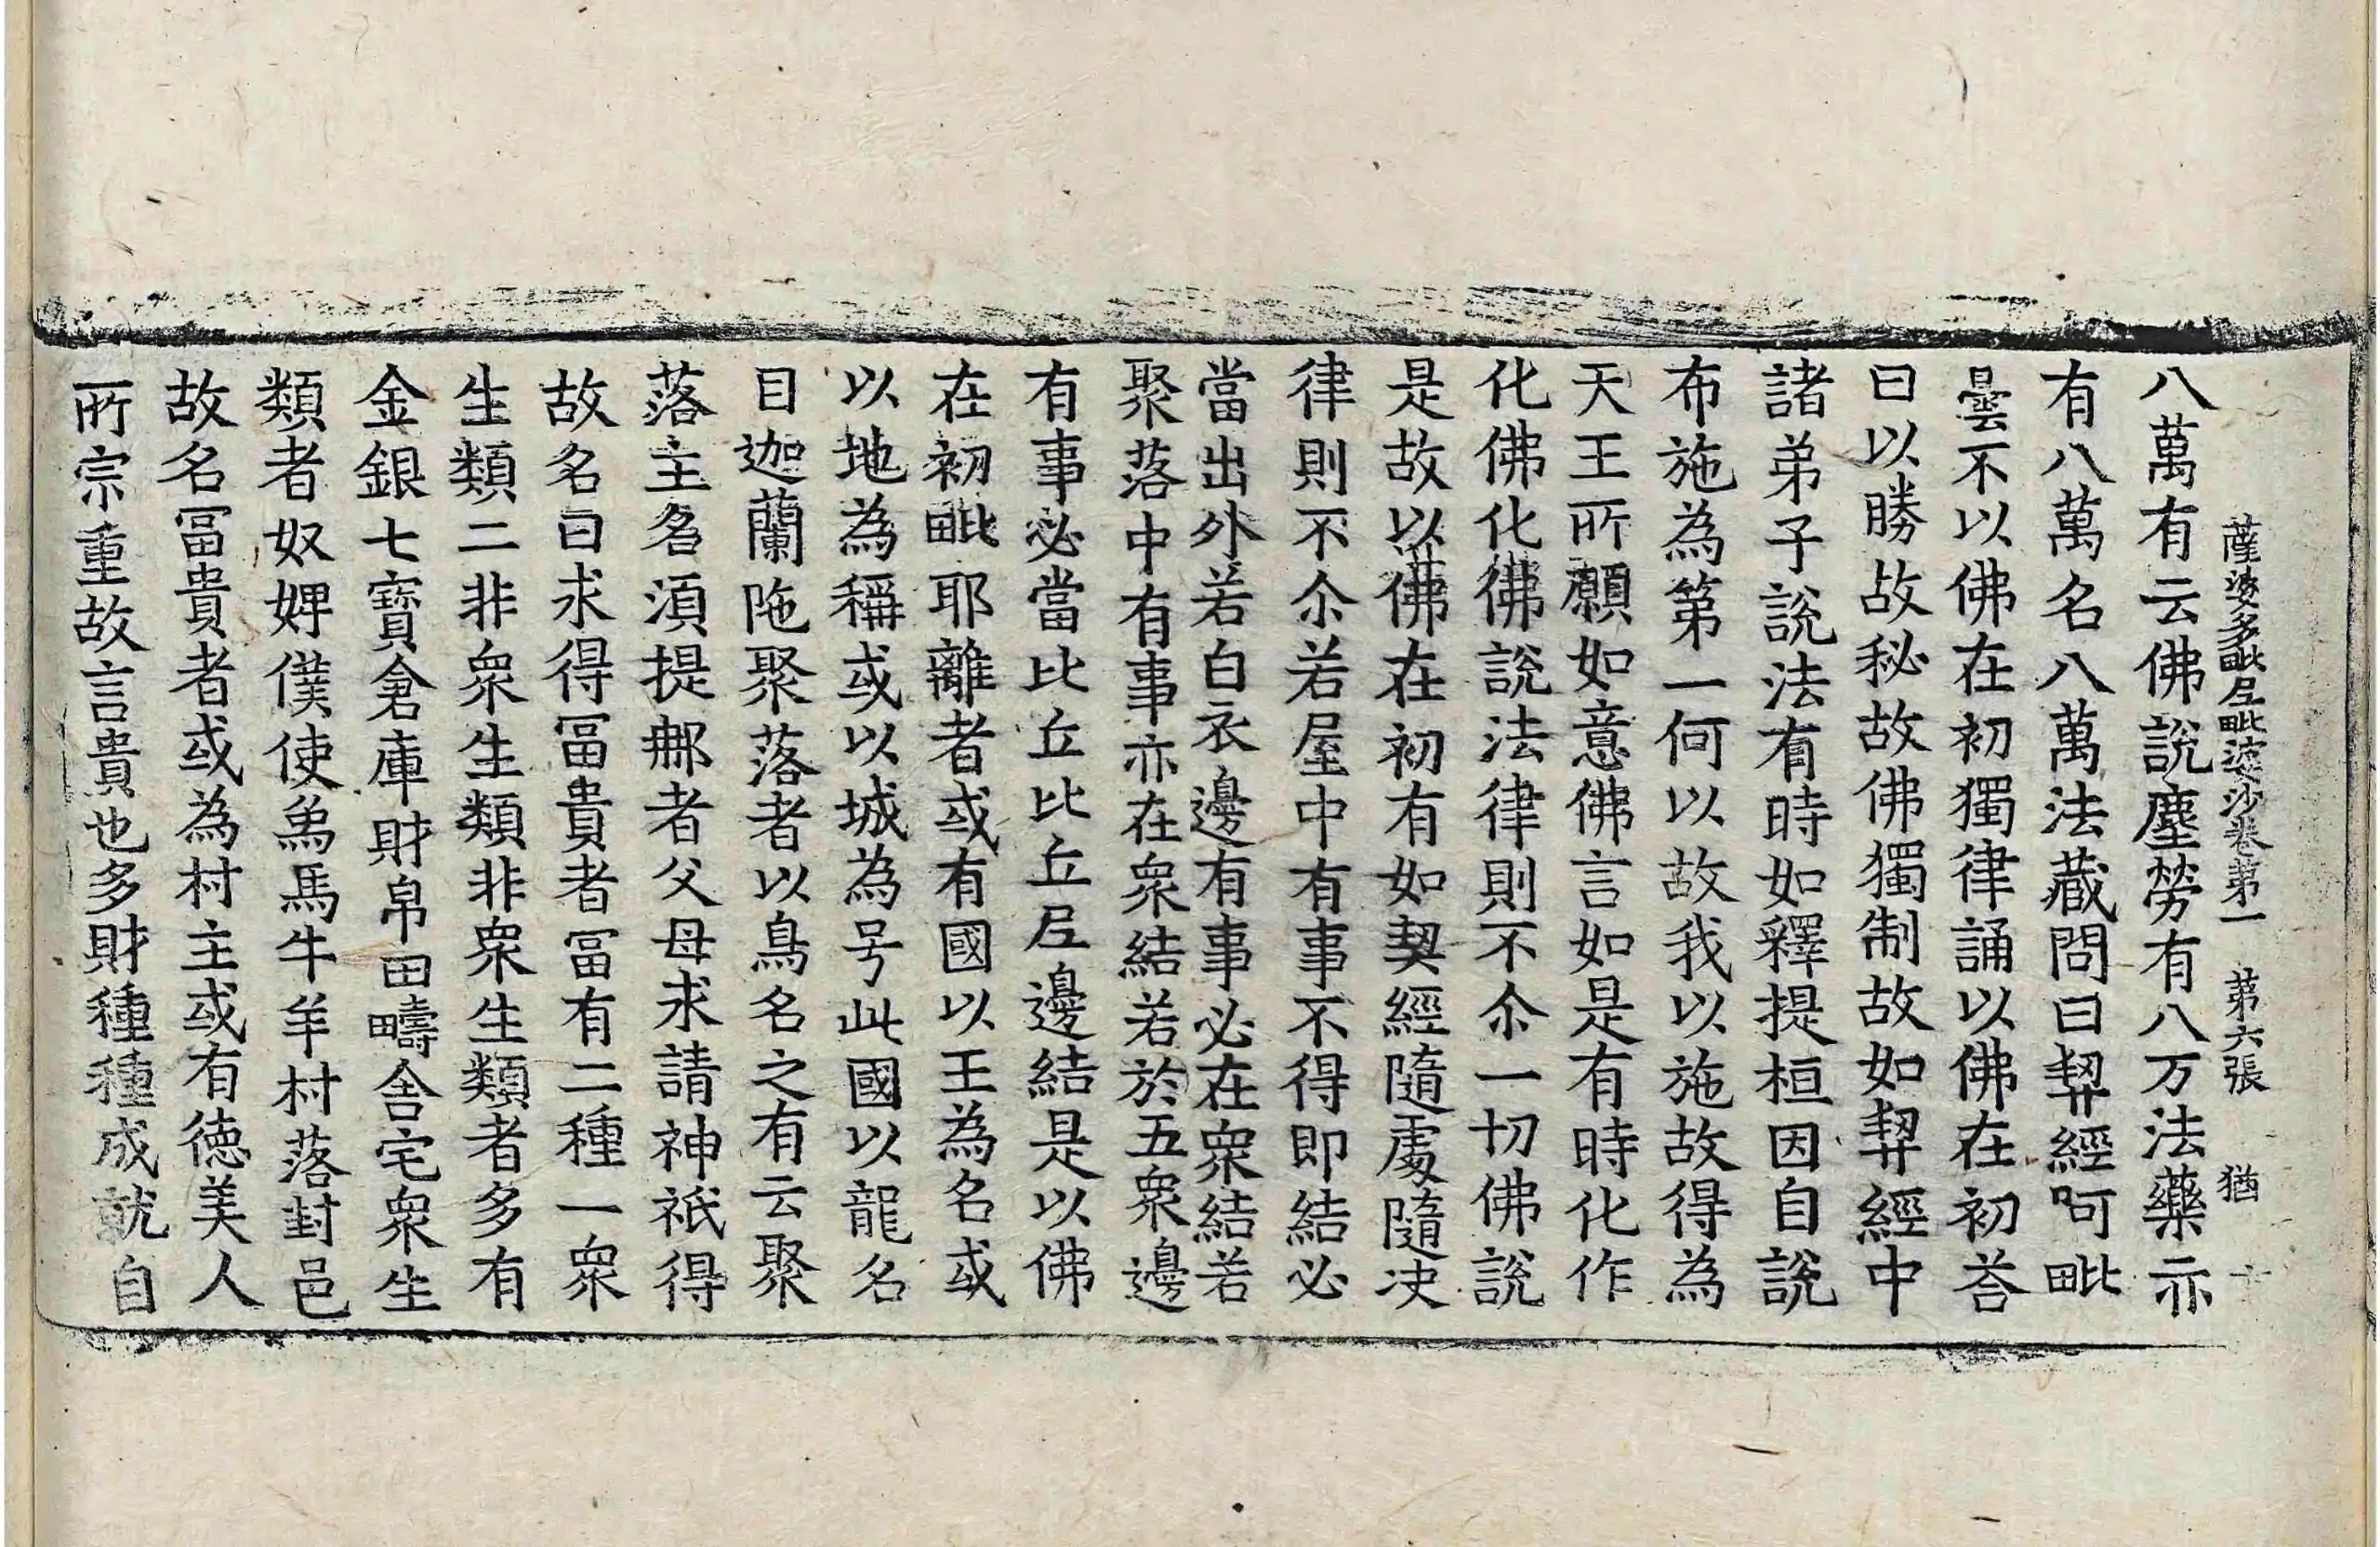 薩婆多毗尼毗婆沙卷第一　第六張　猶
八萬有云佛說塵勞有八万法藥亦
有八萬名八萬法藏問曰契經阿毗
曇不以佛在初獨律誦以佛在初荅
曰以勝故秘故佛獨制故如契經中
諸弟子說法有時如釋提桓因自說
布施為第一何以故我以施故得為
天王所願如意佛言如是有時化作
化佛化佛說法律則不尒一切佛說
是故以佛在初有如契經隨處隨决
律則不尒若屋中有事不得即結必
當出外若白衣邊有事必在衆結若
聚落中有事亦在衆結若於五衆邊
有事必當比丘比丘尼邊結是以佛
在初毗耶離者或有國以王為名或
以地為稱或以城為号此國以龍名
目迦蘭陁聚落者以鳥名之有云聚
落主名湏提那者父母求請神祇得
故名曰求得冨貴者冨有二種一衆
生類二非衆生類非衆生類者多有
金銀七寶倉庫財帛田疇舍宅衆生
類者奴婢僕使象馬牛羊村落封邑
故名冨貴者或為村主或有德美人
所宗重故言貴也多財種種成就自